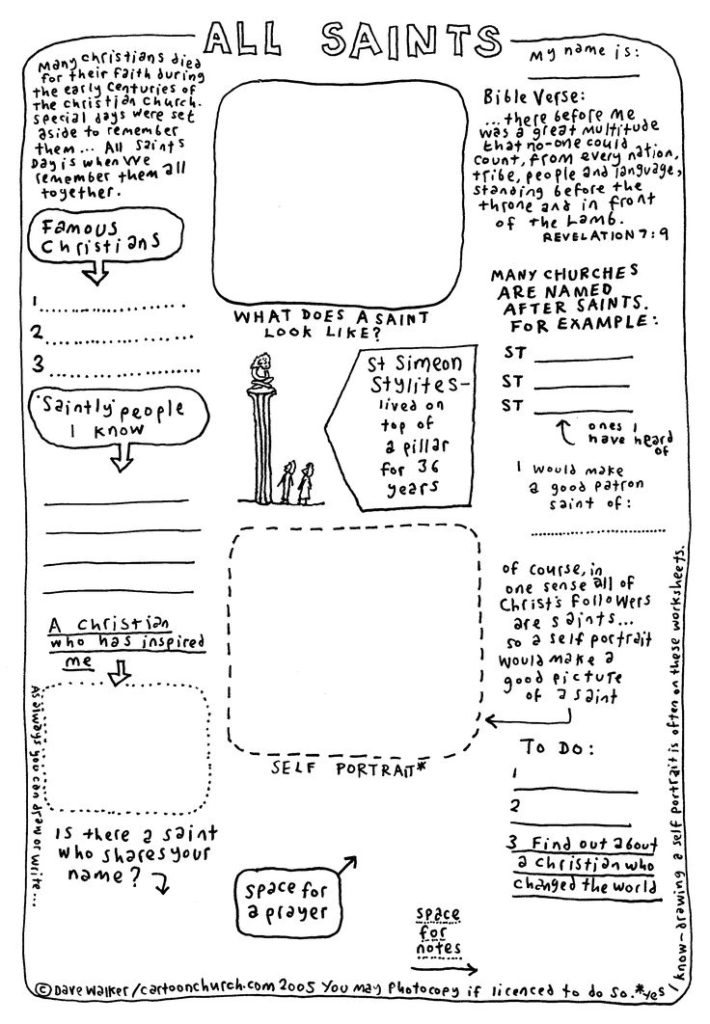 ALL SAINTS
Many Christians died
for their faith during
the early centuries of
the Christian Church.
Special days were set
aside to remember
them... All Saints
Day is when we
remember them all
together.
Famous
Christians
1
2
3
'Saintly' people
I know
A Christian
who has inspired
me
As always you can draw or write...
Is there a saint
who shares your
name?
WHAT DOES A SAINT
LOOK LIKE?
St Simeon
Stylites-
lived on
top of
a pillar
for 36
years
SELF PORTRAIT*
space for
a prayer
space
for
notes
My name is:
Bible Verse:
...there before me
was a great multitude
that no-one could
count, from every nation,
tribe, people and language,
standing before the
throne and in front
of the Lamb.
REVELATION 7:9
MANY CHURCHES
ARE NAMED
AFTER SAINTS.
FOR EXAMPLE:
ST
ST
ST
ones I
have heard
of
I would make
a good patron
saint of:
Of course, in
one sense all of
Christ's followers
are saints...
so a self portrait
would make a
good picture
of a saint
TO DO:
1
2
3 Find out about
a Christian who
changed the world
© Dave Walker/cartoonchurch.com 2005 You may photocopy if licenced to do so. *Yes
I know-drawing a self portrait is often on these worksheets.